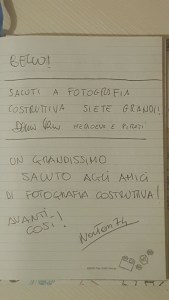 BELLO!
SALUTI A FOTOGRAFIA
COSTRUTTIVA SIETE GRANDI!
MEDUSEA E PIRATI
UN GRANDISSIMO
SALUTO AGLI AMICI
DI FOTOGRAFIA COSTRUTTIVA!
AVANTI
COSÌ!
Norton 74